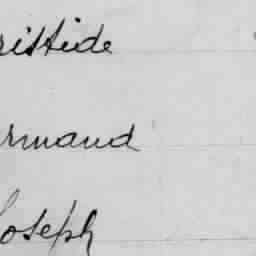 ristide
rmand
Joseph